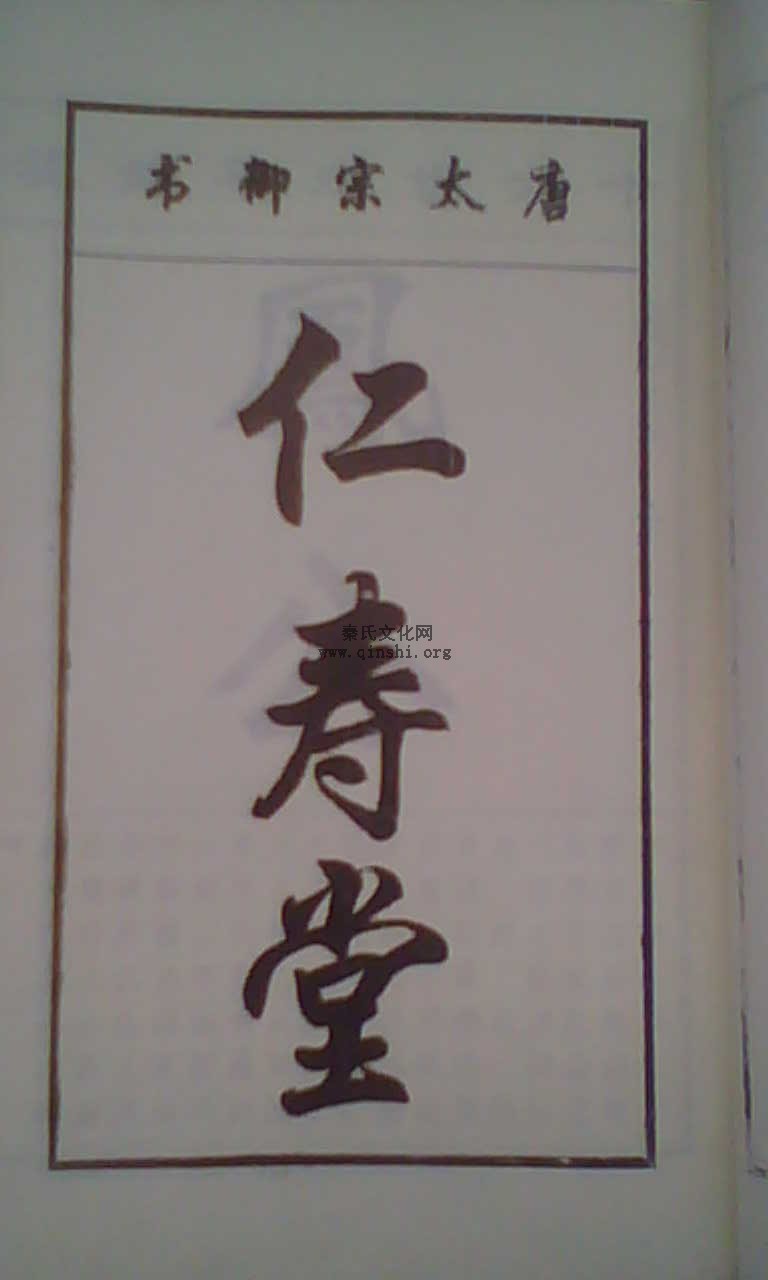 唐太宗御书
仁寿堂
秦氏文化网
www.qinshi.org